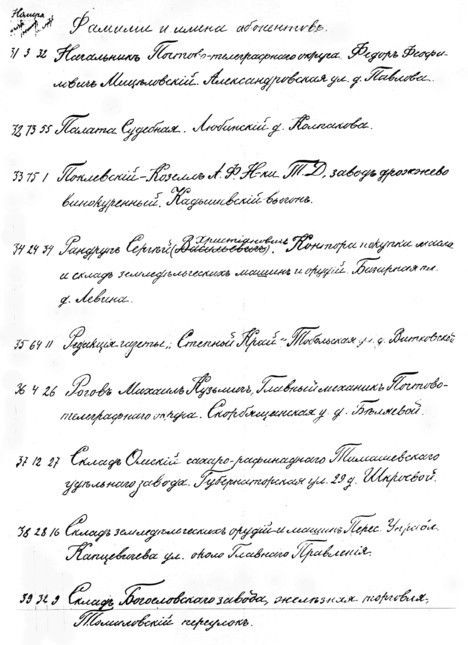 Номера
Фамилии и имена абонентовъ.
31 3 32 Начальникъ Почтово-телеграфнаго округа Федоръ Феофи-
ловичъ Мицѣловскій. Александровская ул. д. Павлова.
32 73 55 Палата Судебная. Любинскій д. Колпакова.
33 75 1 Поклевскій-Козеллъ А. Ф. Н-ки Т. Д. заводъ дрожжево
винокуренный. Кадышевскій
34 24 34 Рандрупъ Сергѣй (Васильевичъ) Христіановичъ. Контора покупки масла
и складъ земледѣльческихъ машинъ и орудій. Базарная пл.
д. Левина.
35 64 11 Редакція газеты „Степной Край" Тобольская ул. д. Витковской
36 4 26 Роговъ Михаилъ Кузьмичъ, Главный механикъ Почтово-
телеграфнаго округа. Скорбященская у. д. Бѣляевой.
37 12 27 Складъ Омскій сахаро-рафинаднаго Тимашевскаго
удѣльнаго завода. Губернаторская ул. 29 д. Шкроевой.
38 28 16 Складъ земледѣльческихъ орудій и машинъ Перес. Упр.
Капцевичева ул. около Главнаго Правленія.
39 32 9 Складъ Богословскаго завода, желѣзная торговля,
Томиловскій переулокъ.